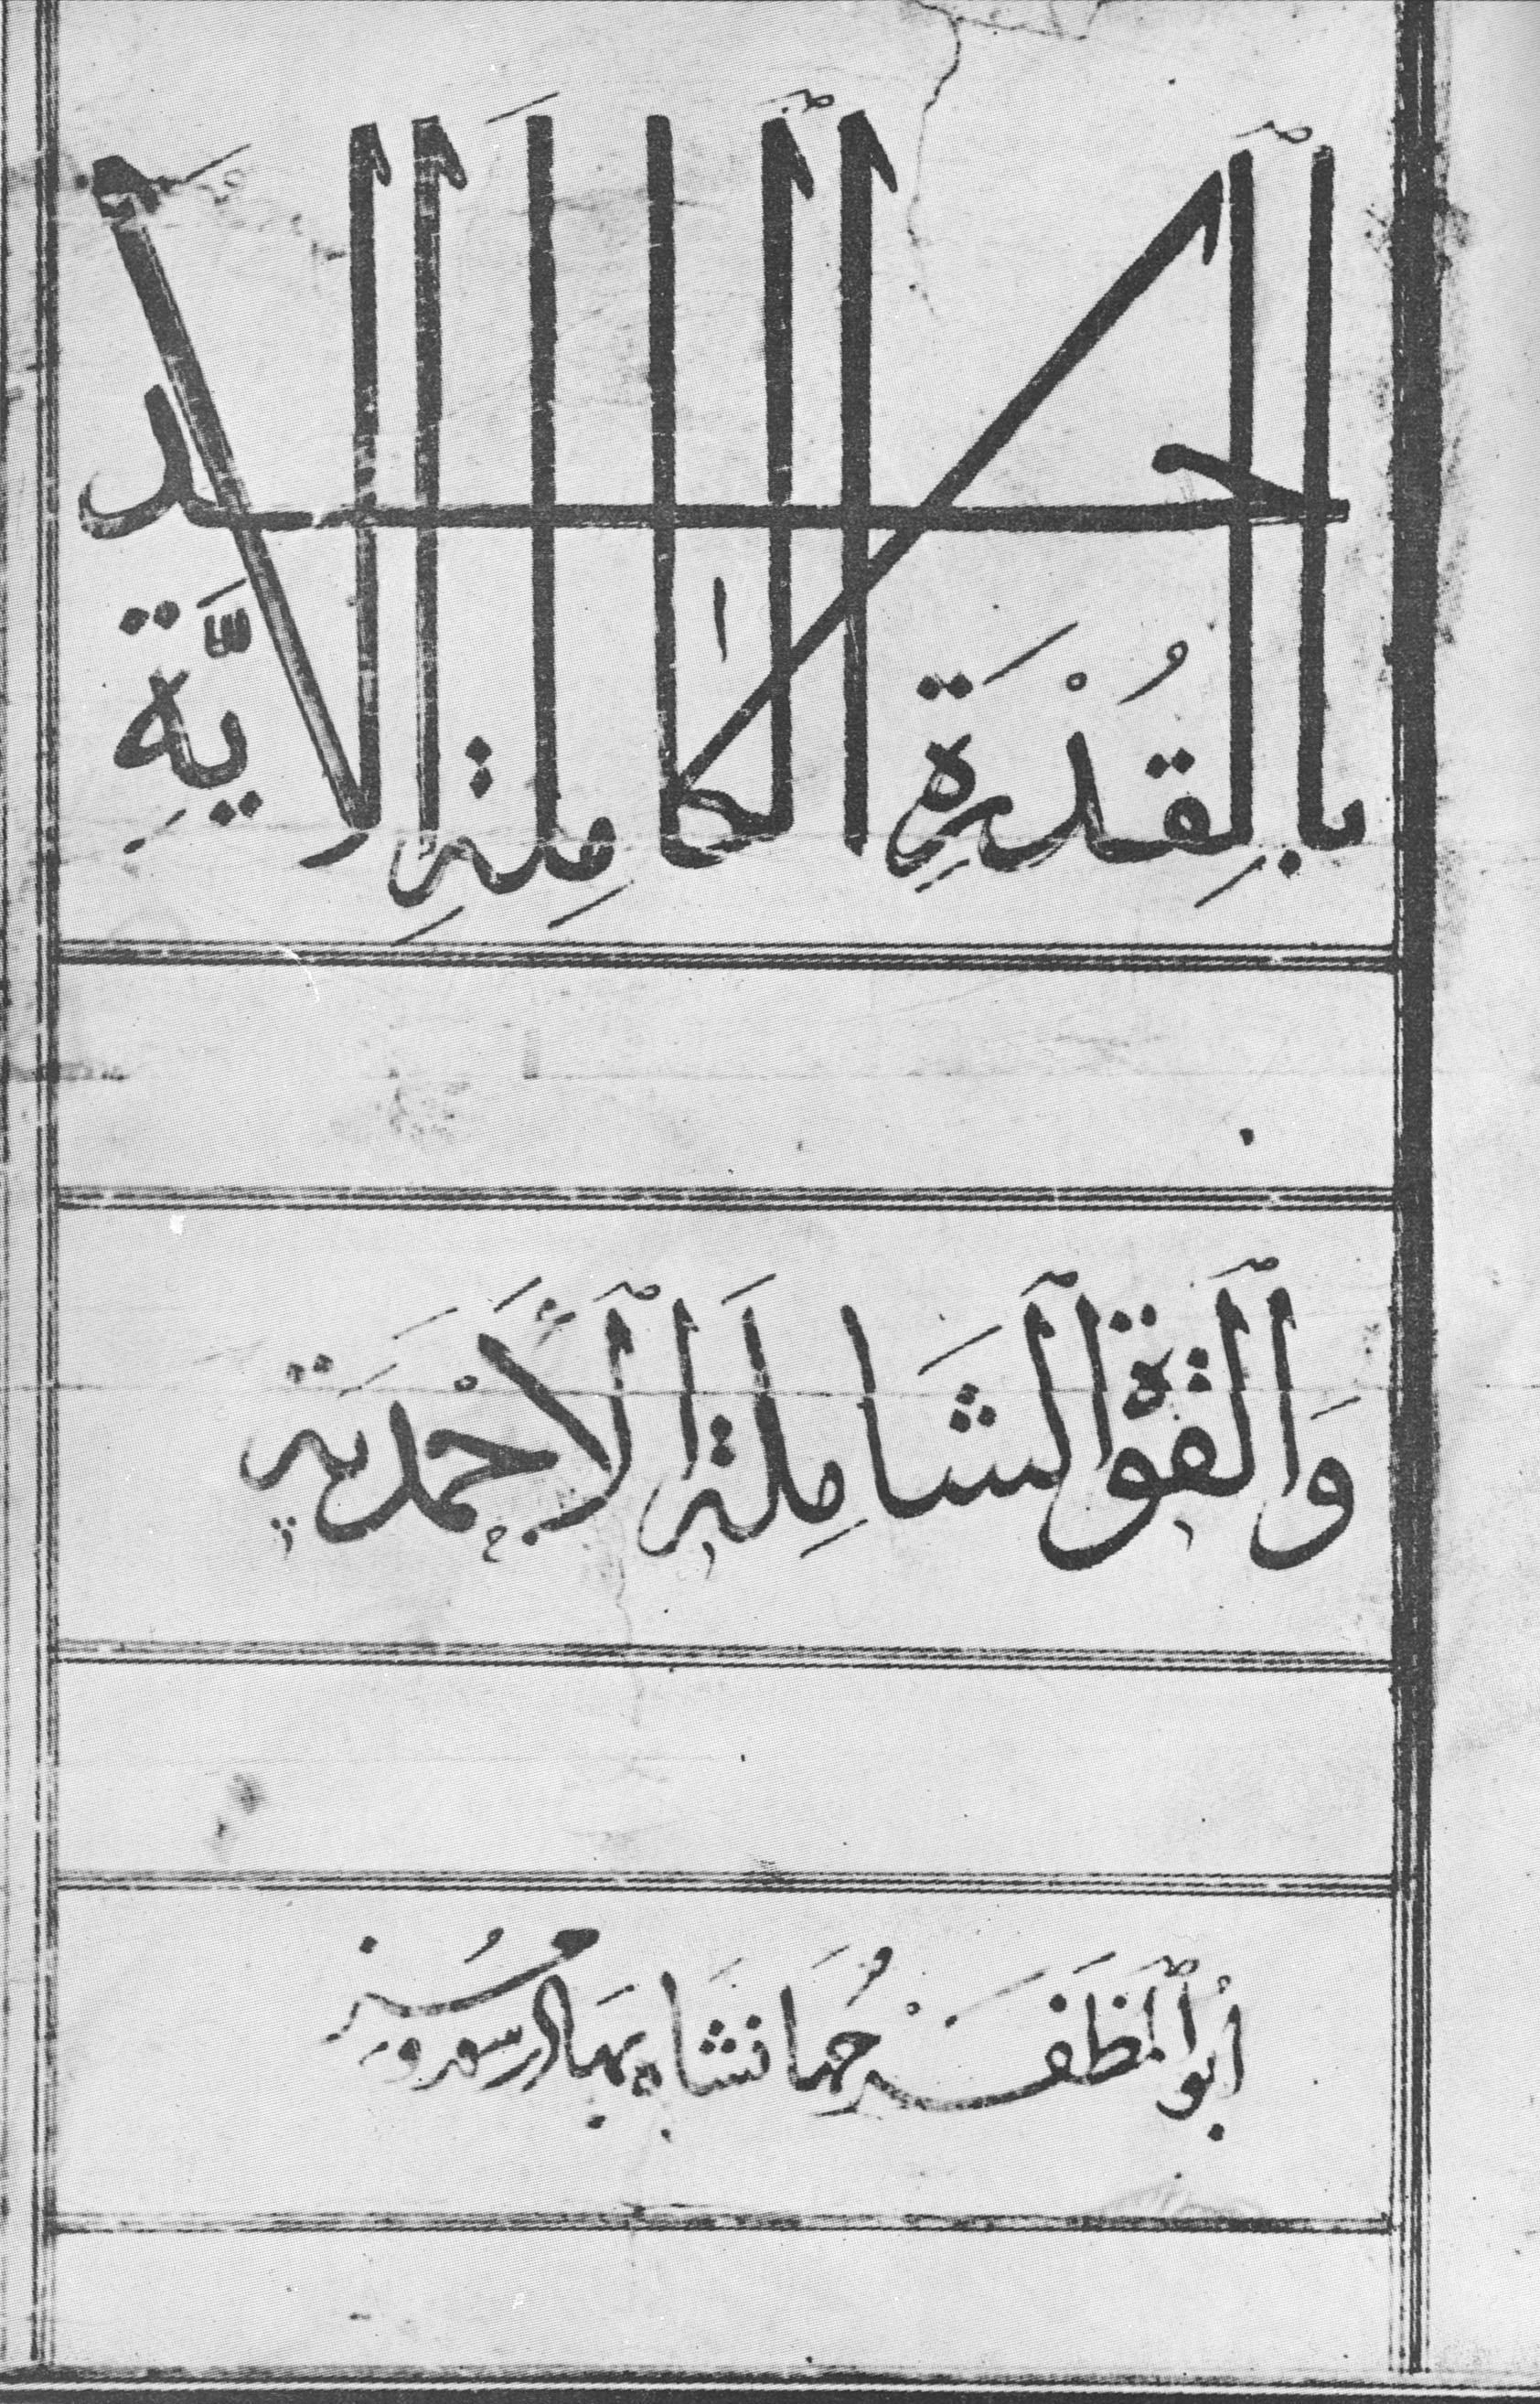 بِٱلقُدْرَةِ ٱلكَامِلَةِ الاحديَّةِ
وَٱلْقُوَّة ٱلشَامِلَة ٱلأَحْمَدَية
أبُو ٱلمظَفَّر جُهَانشَاه بهَادر